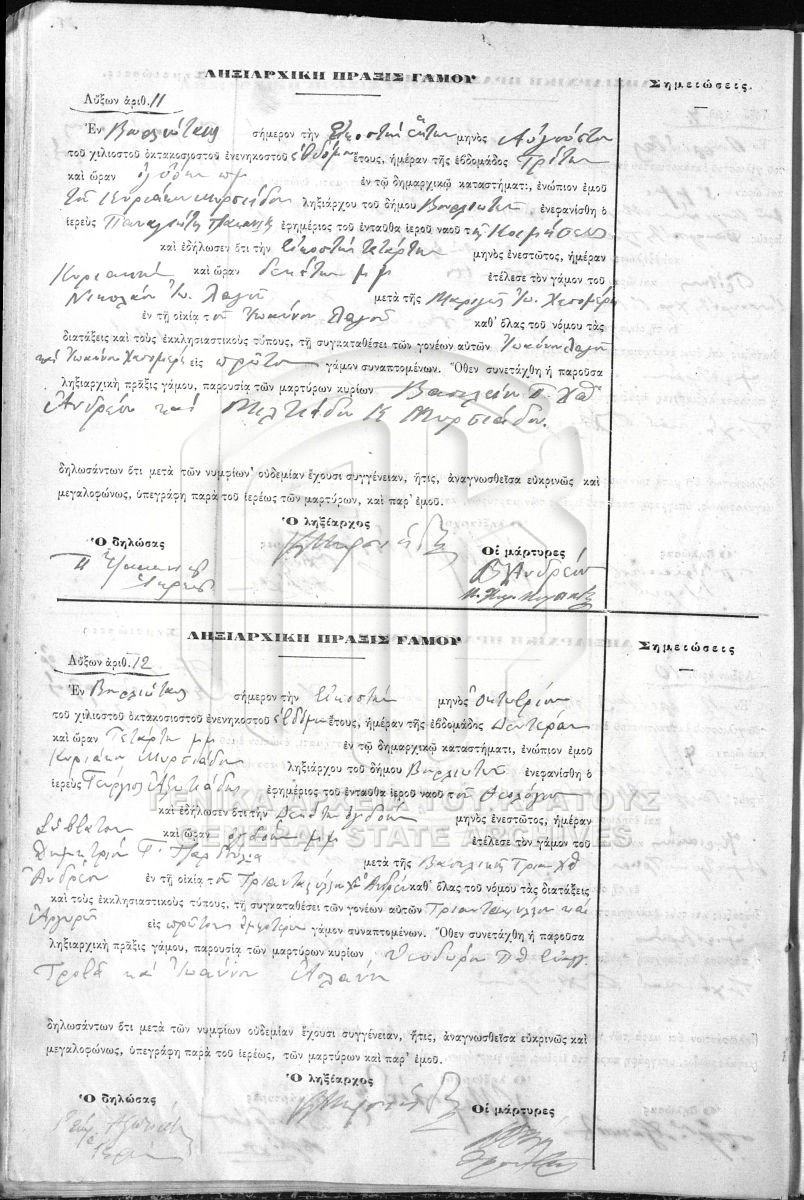 ΛΗΞΙΑΡΧΙΚΗ ΠΡΑΞΙΣ ΓΑΜΟΥ
Σημειώσεις
Αὔξων ἀριθ. 11
Ἐν Βουρλιώταις σήμερον τὴν Εἰκοστὴν μηνὸς Αὐγούστου
τοῦ χιλιοστοῦ ὀκτακοσιοστοῦ ἐνενηκοστοῦ ἑβδόμου ἔτους, ἡμέραν τῆς ἑβδομάδος Τρίτην
καὶ ὥραν ὀγδόην πμ ἐν τῷ δημαρχικῷ καταστήματι, ἐνώπιον ἐμοῦ
Κυριάκου Μυρσιάδου ληξιάρχου τοῦ δήμου Βουρλιωτῶν ἐνεφανίσθη ὁ
ἱερεὺς Παναγιώτης ἐφημέριος τοῦ ἐνταῦθα ἱεροῦ ναοῦ τῆς Κοιμήσεως
καὶ ἐδήλωσεν ὅτι τὴν εἰκοστὴν τετάρτην μηνὸς ἐνεστῶτος, ἡμέραν
Κυριακὴν καὶ ὥραν δεκάτην μμ ἐτέλεσε τὸν γάμον τοῦ
Νικολάου Ἰω. Λαγοῦ μετὰ τῆς Μαριγῶς Ἰω.
ἐν τῇ οἰκίᾳ τοῦ Ἰωάννου Λαγοῦ καθ' ὅλας τοῦ νόμου τὰς
διατάξεις καὶ τοὺς ἐκκλησιαστικοὺς τύπους, τῇ συγκαταθέσει τῶν γονέων αὐτῶν Ἰωάννου Λαγοῦ
καὶ Ἰωάννου εἰς πρῶτον γάμον συναπτομένων. Ὅθεν συνετάχθη ἡ παροῦσα
ληξιαρχικὴ πρᾶξις γάμου, παρουσίᾳ τῶν μαρτύρων κυρίων Βασιλείου Π. Χ´´
Ἀνδρέου καὶ Μιλτιάδου Κ Μυρσιάδου.
δηλωσάντων ὅτι μετὰ τῶν νυμφίων οὐδεμίαν ἔχουσι συγγένειαν, ἥτις, ἀναγνωσθεῖσα εὐκρινῶς καὶ
μεγαλοφώνως, ὑπεγράφη παρὰ τοῦ ἱερέως τῶν μαρτύρων, καὶ παρ' ἐμοῦ.
Ὁ ληξίαρχος
Ὁ δηλώσας
Οἱ μάρτυρες
Β Ἀνδρέου
ΛΗΞΙΑΡΧΙΚΗ ΠΡΑΞΙΣ ΓΑΜΟΥ
Σημειώσεις
Αὔξων ἀριθ. 12
Ἐν Βουρλιώταις σήμερον τὴν εἰκοστὴν μηνὸς Ὀκτωβρίου
τοῦ χιλιοστοῦ ὀκτακοσιοστοῦ ἐνενηκοστοῦ ἑβδόμου ἔτους, ἡμέραν τῆς ἑβδομάδος Δευτέραν
καὶ ὥραν Τετάρτην μμ ἐν τῷ δημαρχικῷ καταστήματι, ἐνώπιον ἐμοῦ
Κυριάκου Μυρσιάδου ληξιάρχου τοῦ δήμου Βουρλιωτῶν ἐνεφανίσθη ὁ
ἱερεὺς Γεώργιος ἐφημέριος τοῦ ἐνταῦθα ἱεροῦ ναοῦ τοῦ Θεολόγου
ΓΕΝΙΚΑ ΑΡΧΕΙΑ ΤΟΥ ΚΡΑΤΟΥΣ
καὶ ἐδήλωσεν ὅτι τὴν δεκάτην ὀγδόην μηνὸς ἐνεστῶτος, ἡμέραν
Σάββατον καὶ ὥραν ὀγδόην μμ ἐτέλεσε τὸν γάμον τοῦ
GENERAL STATE ARCHIVES
Δημητρίου Γ. μετὰ τῆς Βασιλικῆς Τριαν. Χ´´
Ἀνδρέου ἐν τῇ οἰκίᾳ τοῦ Τριανταφύλλου Χ´´ Ἀνδρέου καθ' ὅλας τοῦ νόμου τὰς διατάξεις
καὶ τοὺς ἐκκλησιαστικοὺς τύπους, τῇ συγκαταθέσει τῶν γονέων αὐτῶν Τριανταφύλλου καὶ
Ἀργυρῆς εἰς πρῶτον ἀμφοτέρων γάμον συναπτομένων. Ὅθεν συνετάχθη ἡ παροῦσα
ληξιαρχικὴ πρᾶξις γάμου, παρουσίᾳ τῶν μαρτύρων κυρίων, Θεοδώρου
καὶ Ἰωάννου
δηλωσάντων ὅτι μετὰ τῶν νυμφίων οὐδεμίαν ἔχουσι συγγένειαν, ἥτις, ἀναγνωσθεῖσα εὐκρινῶς καὶ
μεγαλοφώνως, ὑπεγράφη παρὰ τοῦ ἱερέως, τῶν μαρτύρων καὶ παρ' ἐμοῦ.
Ὁ ληξίαρχος
Ὁ δηλώσας
Οἱ μάρτυρες